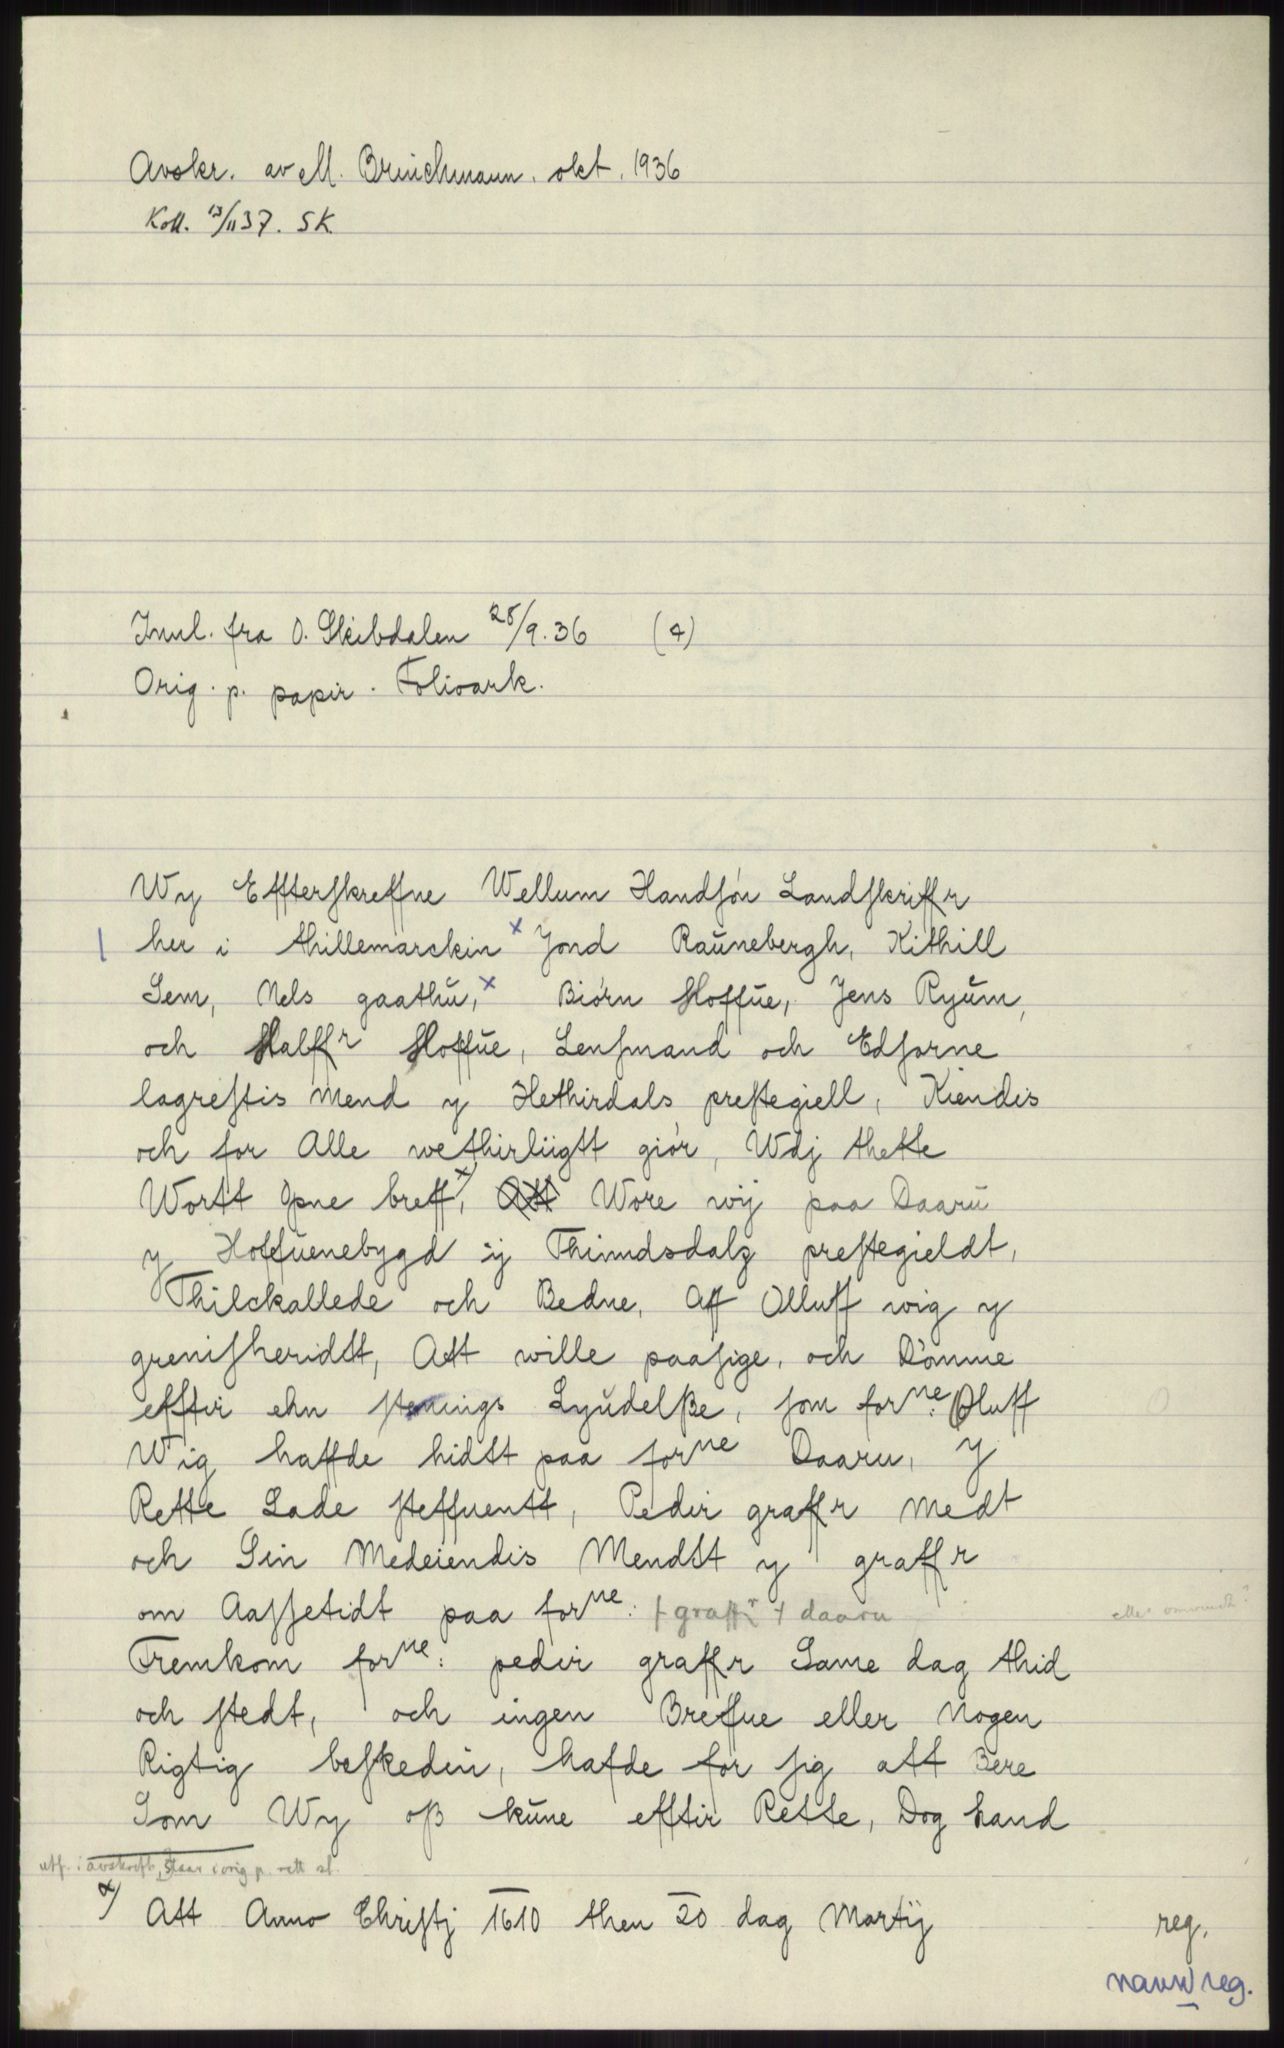 Avskr. av M. Brinchmann. okt. 1936
Koll. 13/11 37. SK.
Innl. fra O. Skibdalen 28/9.36 (4)
Orig. p. papir. Folioark.
Wy Effterskreffne Wellum Handsøn Landskriffr
her i thillemarckin x Jond Raŭnebergh, Kithill
Sem, Nels gaathŭ, x Biørn Hoffŭe, Jens Ryŭm,
och Halffr Hoffŭe, Lensmand och Edsorne
lagrettis mend y Hethirdals prestegiell, Kiendis
och for Alle wethirliigtt giør, Wdj thette
Wortt Opne breff x), Wore wij paa Daarŭ
y Hoffŭenebygd ij Thimdsdalz prestegieldt,
Thilckallede och Bedne, Aff Olluff wig y
grenisheridtt, Att wille paasige, och Dømme
efftir ehn stenings Lyŭdelße, som forne: Oluff
Wig haffde hidtt paa forne Daaru, Y
Rette Lade steffuentt, Pedir graffr medt
och Sin Medeiendis Mendtt y graffr
om Aassetidt paa forne: + graffr + daaru
eller omvendt?
Fremkom forne: pedir graffr Same dag thid
och stedt, och ingen Breffue eller Nogen
Rigtig beskedin, hafde for sig att Bere
Som Wy oß kŭne efftir Rette, Dog hand
utf. i avskrift, staar i orig p. rett st.
x) Att Anno Christj 1610 then 20 dag Martij
reg.
navn reg.